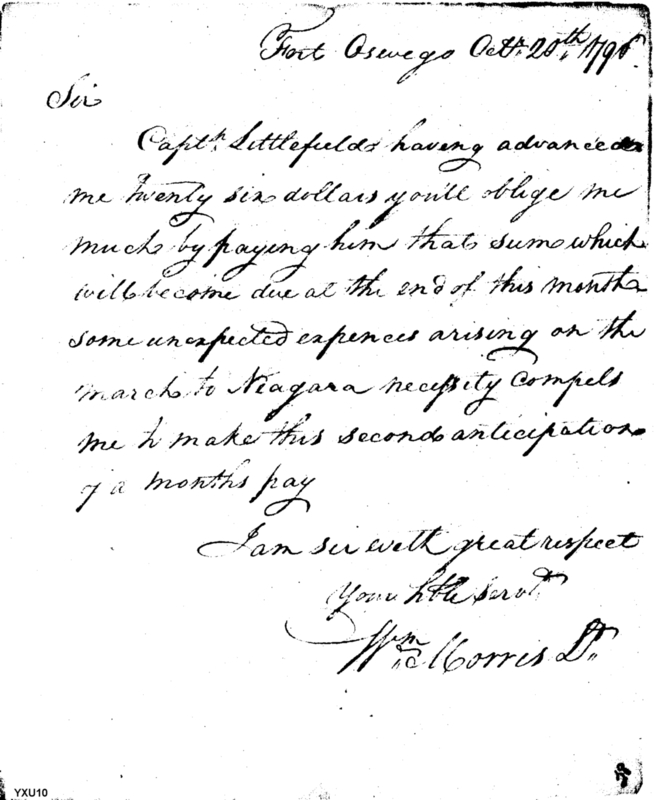 Fort Oswego Octr. 20th. 1796.
Sir
Captn. Littlefield having advanced
me twenty six dollars you'll oblige me
much by paying him that sum which
will become due at the end of this month
some unexpected expences arising on the
march to Niagara necessity compels
me to make this second anticipation
of a months pay
I am sir with great respect
Your hble Servt.
Wm Morris Lt.
YXU10